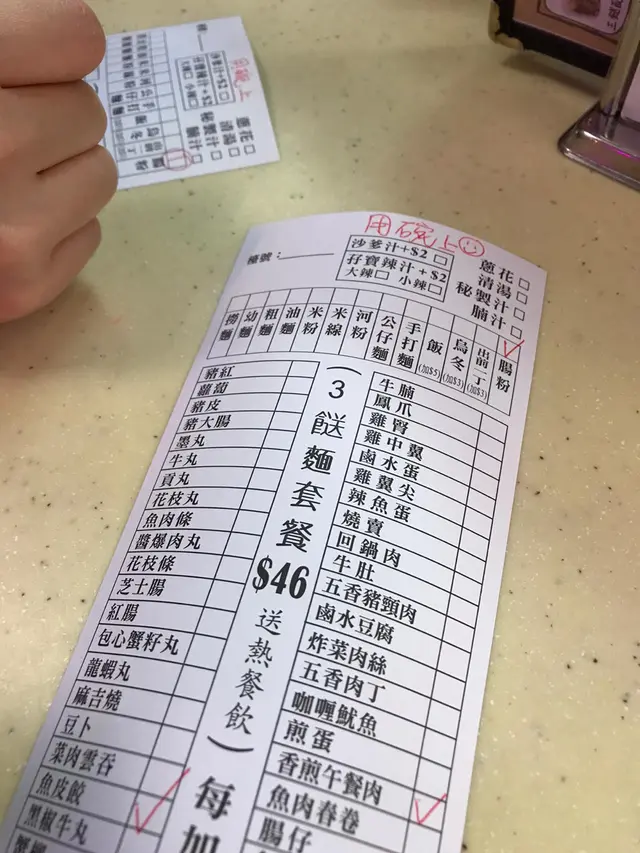 用碗上
檯號：
沙爹汁+$2 □
孖寶辣汁+$2
大辣□ 小辣□
蔥花 □
清湯 □
秘製汁 □
腩汁 □
撈麵
幼麵
粗麵
油麵
米粉
米線
河粉
公仔麵
手打麵
飯(加$5)
烏冬(加$3)
出前一丁(加$3)
腸粉
(3餸麵套餐$46送熱餐飲)每加
豬紅
蘿蔔
豬皮
豬大腸
墨丸
牛丸
貢丸
花枝丸
魚肉條
醬爆肉丸
花枝條
芝士腸
紅腸
包心蟹籽丸
龍蝦丸
麻吉燒
豆卜
菜肉雲吞
魚皮餃
黑椒牛丸
牛腩
鳳爪
雞腎
雞中翼
鹵水蛋
雞翼尖
辣魚蛋
燒賣
回鍋肉
牛肚
五香豬頸肉
鹵水豆腐
炸菜肉絲
五香肉丁
咖喱魷魚
煎蛋
香煎午餐肉
魚肉春卷
腸仔
用碗上
沙爹汁+$2 □
孖寶辣汁+$2
大辣□ 小辣□
蔥花 □
清湯 □
秘製汁 □
腩汁 □